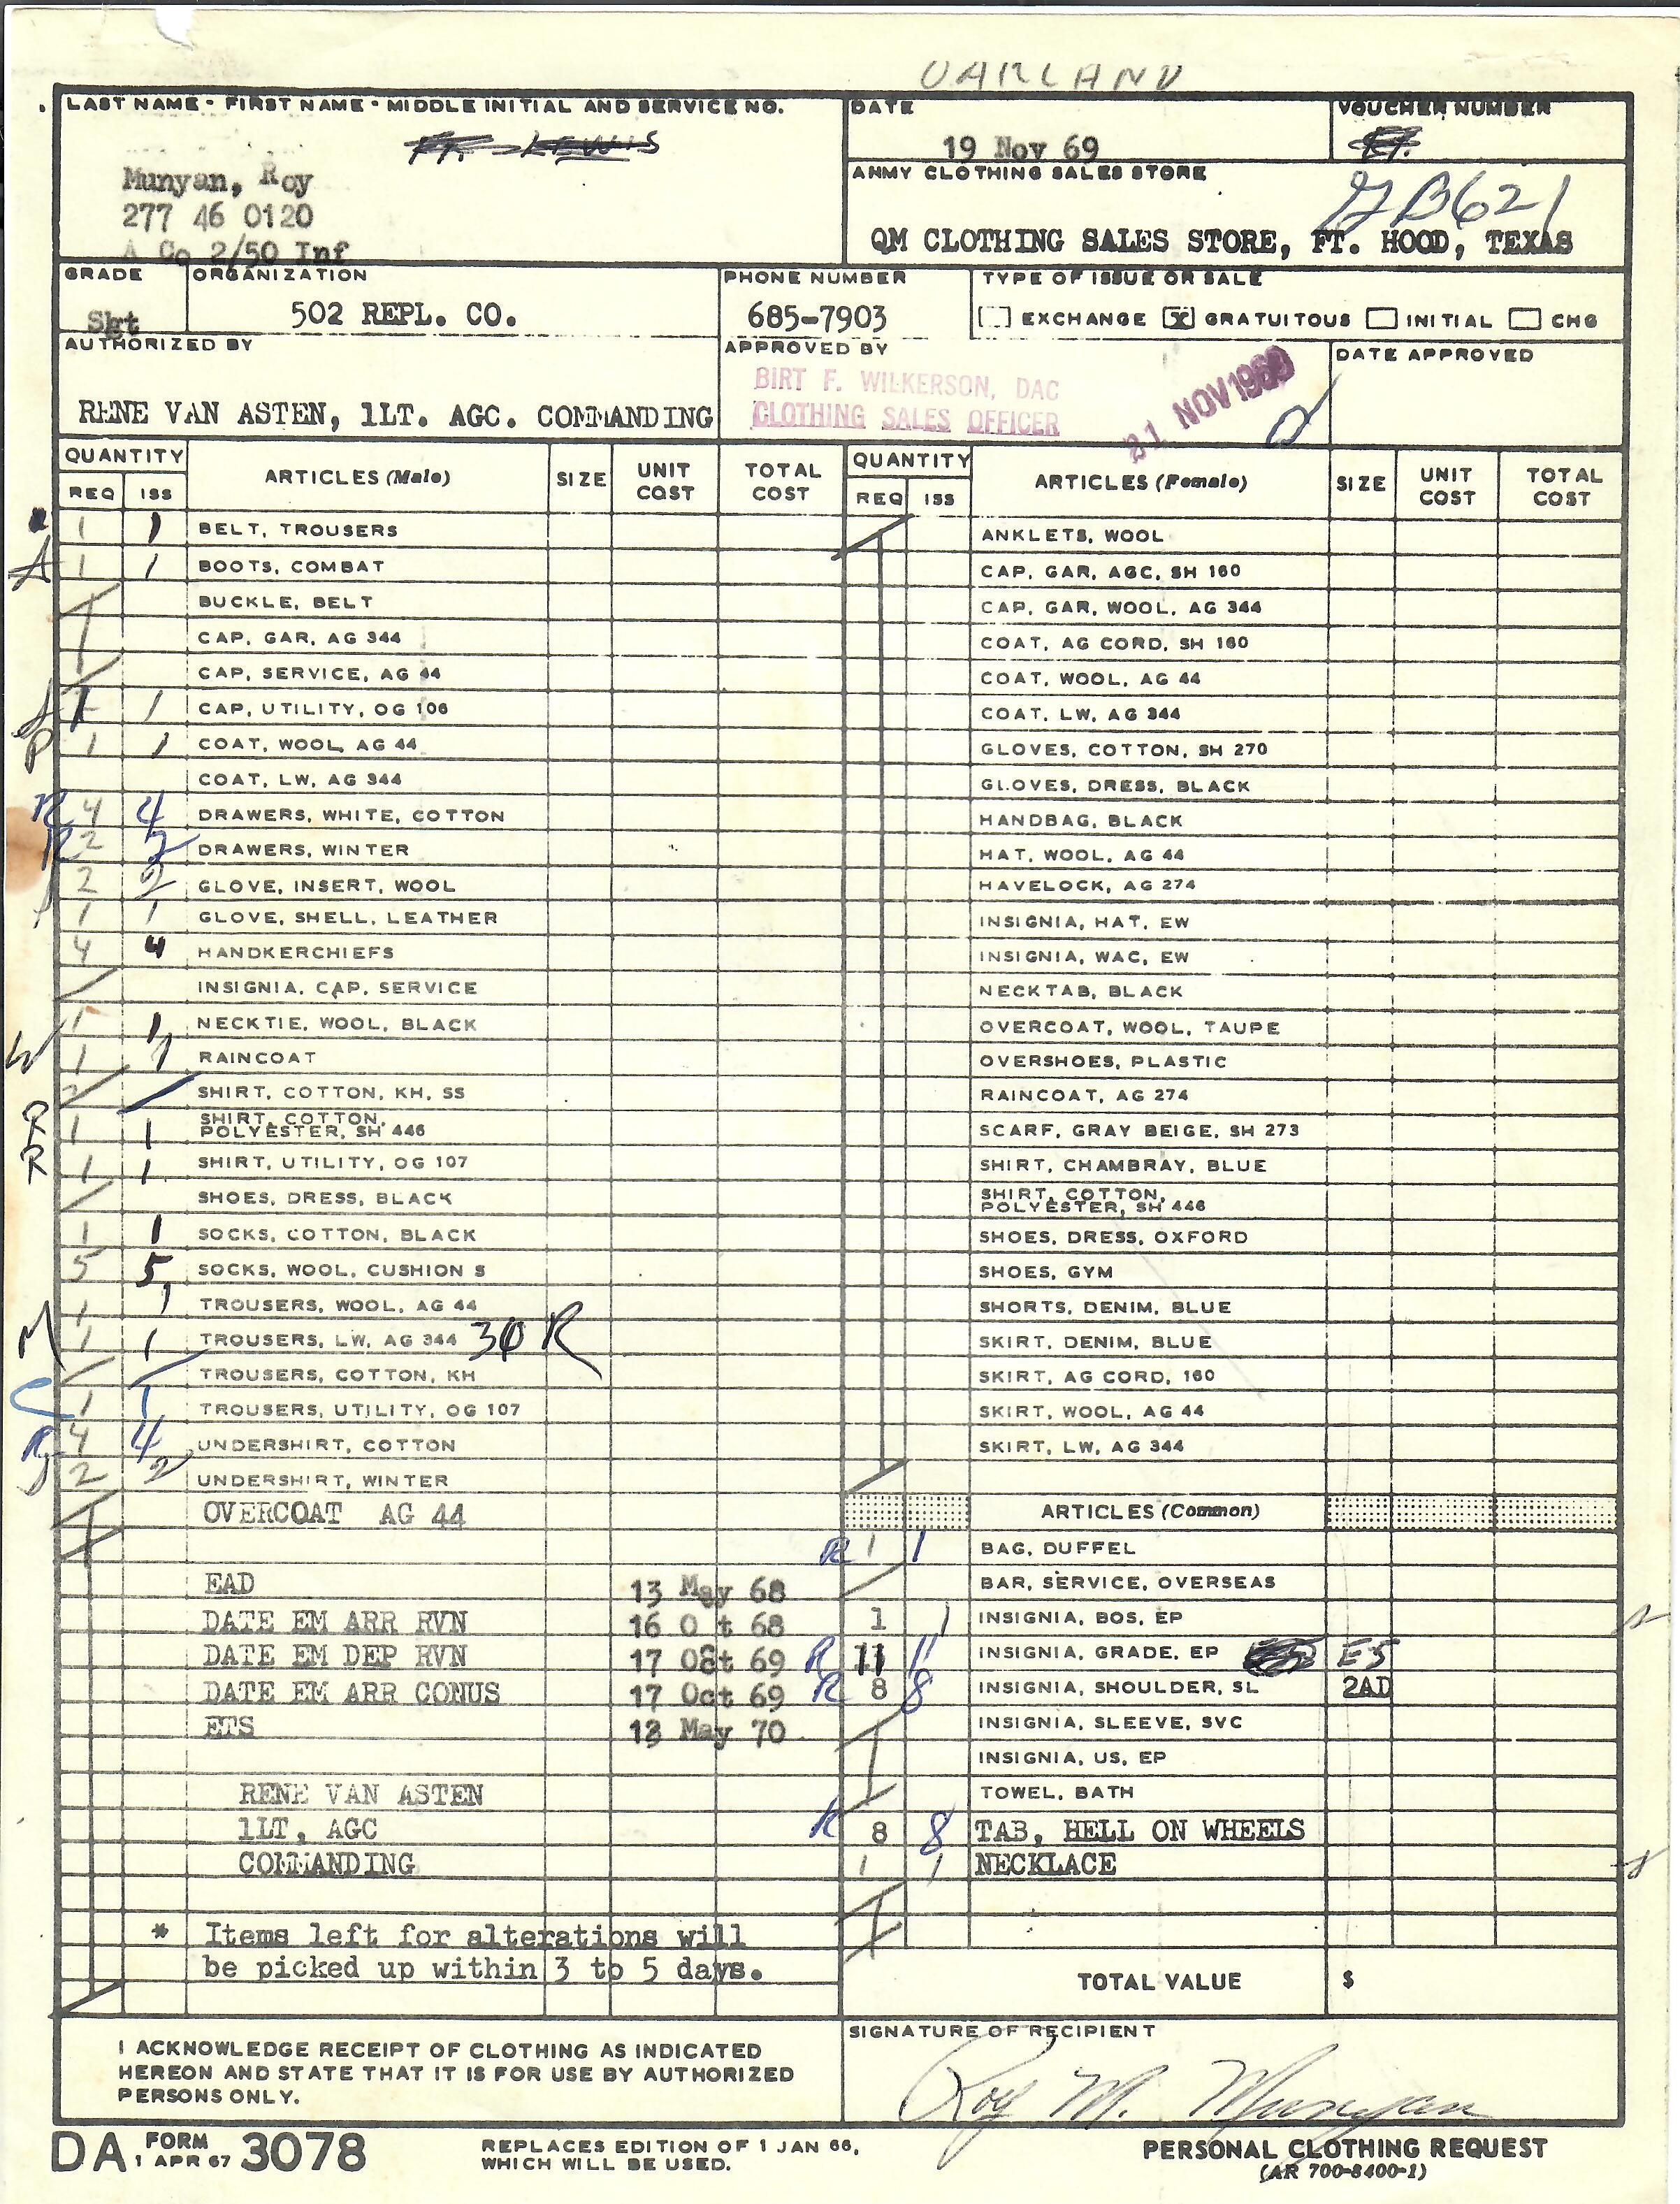 OAKLAND
LAST NAME - FIRST NAME - MIDDLE INITIAL AND SERVICE NO.
FT. LEWIS
Munyan, Roy
277 46 0120
A Co 2/50 Inf
DATE
19 Nov 69
VOUCHER NUMBER
ARMY CLOTHING SALES STORE
QM CLOTHING SALES STORE, FT. HOOD, TEXAS
GRADE
Sgt
ORGANIZATION
502 REPL. CO.
PHONE NUMBER
685-7903
TYPE OF ISSUE OR SALE
EXCHANGE X GRATUITOUS INITIAL CHG
AUTHORIZED BY
RENE VAN ASTEN, 1LT. AGC. COMMANDING
APPROVED BY
BIRT F. WILKERSON, DAC
CLOTHING SALES OFFICER
21 NOV 1969
DATE APPROVED
QUANTITY
REQ ISS
ARTICLES (Male)
SIZE
UNIT COST
TOTAL COST
1 1 BELT, TROUSERS
A 1 1 BOOTS, COMBAT
BUCKLE, BELT
CAP, GAR, AG 344
CAP, SERVICE, AG 44
1 1 CAP, UTILITY, OG 106
P 1 1 COAT, WOOL, AG 44
COAT, LW, AG 344
R 4 4 DRAWERS, WHITE, COTTON
R 2 2 DRAWERS, WINTER
2 2 GLOVE, INSERT, WOOL
1 1 GLOVE, SHELL, LEATHER
4 4 HANDKERCHIEFS
INSIGNIA, CAP, SERVICE
1 1 NECKTIE, WOOL, BLACK
W 1 1 RAINCOAT
SHIRT, COTTON, KH, SS
R 1 1 SHIRT, COTTON, POLYESTER, SH 446
R 1 1 SHIRT, UTILITY, OG 107
SHOES, DRESS, BLACK
1 1 SOCKS, COTTON, BLACK
5 5 SOCKS, WOOL, CUSHION S
1 1 TROUSERS, WOOL, AG 44
M 1 1 TROUSERS, LW, AG 344 30 R
TROUSERS, COTTON, KH
1 1 TROUSERS, UTILITY, OG 107
R 4 4 UNDERSHIRT, COTTON
2 2 UNDERSHIRT, WINTER
OVERCOAT AG 44
EAD 13 May 68
DATE EM ARR RVN 16 O t 68
DATE EM DEP RVN 17 Oct 69
DATE EM ARR CONUS 17 Oct 69
ETS 13 May 70
RENE VAN ASTEN
1LT, AGC
COMMANDING
* Items left for alterations will
be picked up within 3 to 5 days.
QUANTITY
REQ ISS
ARTICLES (Female)
SIZE
UNIT COST
TOTAL COST
ANKLETS, WOOL
CAP, GAR, AGC, SH 160
CAP, GAR, WOOL, AG 344
COAT, AG CORD, SH 160
COAT, WOOL, AG 44
COAT, LW, AG 344
GLOVES, COTTON, SH 270
GLOVES, DRESS, BLACK
HANDBAG, BLACK
HAT, WOOL, AG 44
HAVELOCK, AG 274
INSIGNIA, HAT, EW
INSIGNIA, WAC, EW
NECKTAB, BLACK
OVERCOAT, WOOL, TAUPE
OVERSHOES, PLASTIC
RAINCOAT, AG 274
SCARF, GRAY BEIGE, SH 273
SHIRT, CHAMBRAY, BLUE
SHIRT, COTTON,
POLYESTER, SH 446
SHOES, DRESS, OXFORD
SHOES, GYM
SHORTS, DENIM, BLUE
SKIRT, DENIM, BLUE
SKIRT, AG CORD, 160
SKIRT, WOOL, AG 44
SKIRT, LW, AG 344
ARTICLES (Common)
R 1 1 BAG, DUFFEL
BAR, SERVICE, OVERSEAS
1 1 INSIGNIA, BOS, EP
R 11 11 INSIGNIA, GRADE, EP E5
R 8 8 INSIGNIA, SHOULDER, SL 2AD
INSIGNIA, SLEEVE, SVC
INSIGNIA, US, EP
TOWEL, BATH
R 8 8 TAB, HELL ON WHEELS
1 1 NECKLACE
TOTAL VALUE $
I ACKNOWLEDGE RECEIPT OF CLOTHING AS INDICATED
HEREON AND STATE THAT IT IS FOR USE BY AUTHORIZED
PERSONS ONLY.
SIGNATURE OF RECIPIENT
Roy M. Munyan
DA FORM 3078
1 APR 67
REPLACES EDITION OF 1 JAN 66,
WHICH WILL BE USED.
PERSONAL CLOTHING REQUEST
(AR 700-8400-1)